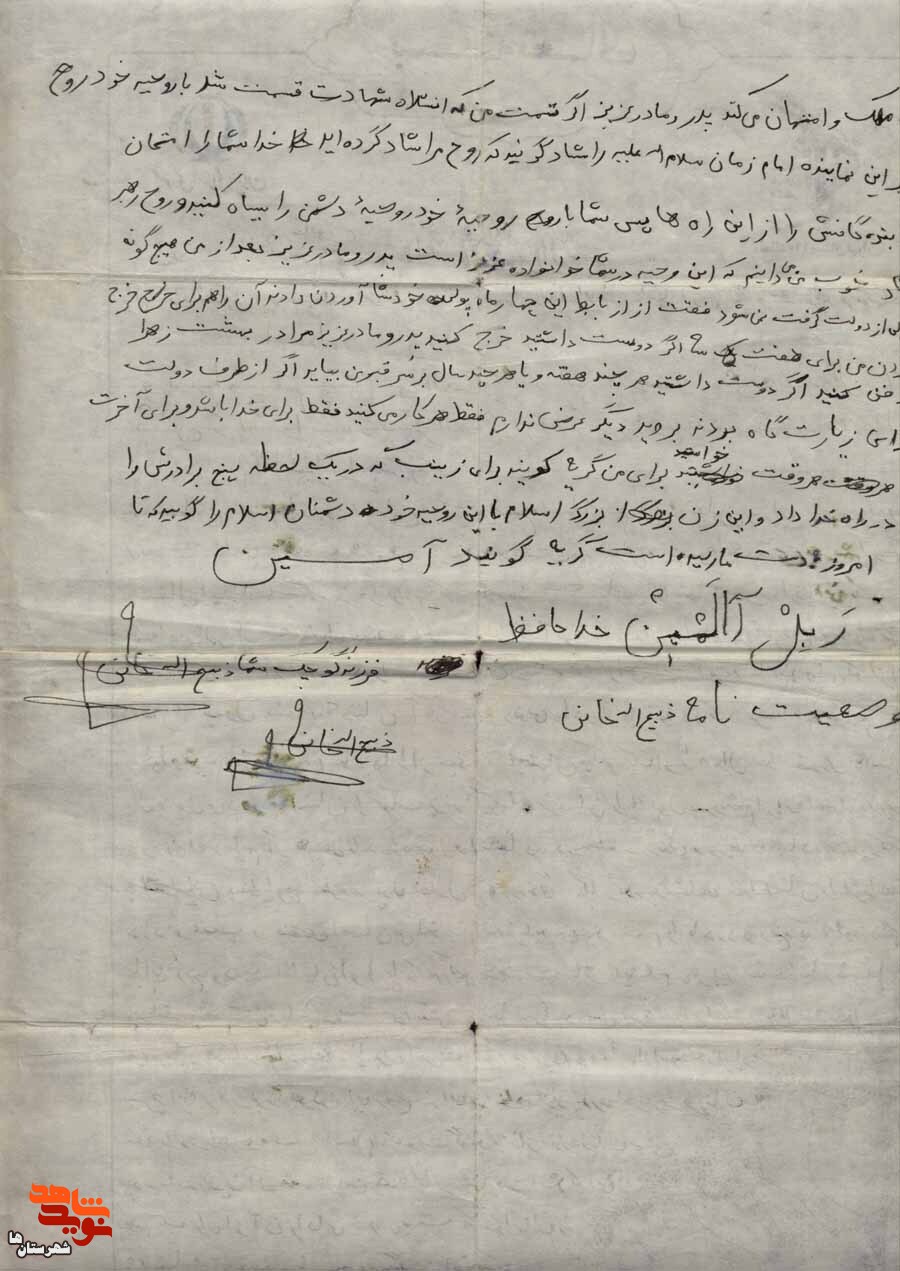 و امتهان می کند پدر و مادر عزیز اگر قسمت من که انشلاه شهادت قسمت شد با روحیه خود روح
این نماینده امام زمان سلام اله علیه را شاد گونید که روح مرا شاد گرده اید خدا شما را امتحان
را از این راه ها پس شما با روحیهٔ خود روحیهٔ دشمن را سیاه کنید و روح رهبر
خوب می داینم که این وحیه در شما خوانواده عزیز است پدر و مادر عزیز بعد از من هیچ گونه
از دولت گرفت نمی شود فقت از از بابط این چهار ماه پولی خود شما آوردن دادند آن را هم برای خرج
من برای هفت اگر دوست داشتید خرج کنید پدر و مادر عزیز مرا در بهشت زهرا
کنید اگر دوست داشتید هر چند هفته و یا هر چند سال بر سُر قبر من بیاید اگر از طرف دولت
زیارت گاه بودند بروید دیگر عرض ندارم فقط هر کار می کنید فقط برای خدا باشد و برای آخرت
هر وقت خواستید برای من گریه کونید برای زینب که در یک لحظه پنج برادرش را
در راه خدا داد و این زن بزرگ اسلام با این روحیه خود دشمنان اسلام را گوبید که تا
امروز بدست ما رسیده است گریه گونید آمـین
خدا حافظ
فرزند کوچک شما ذبیح اله خانی
وصیت نامه ذبیح اله خانی
ذبیح اله خانی
نوید شاهد
شهرستان ها